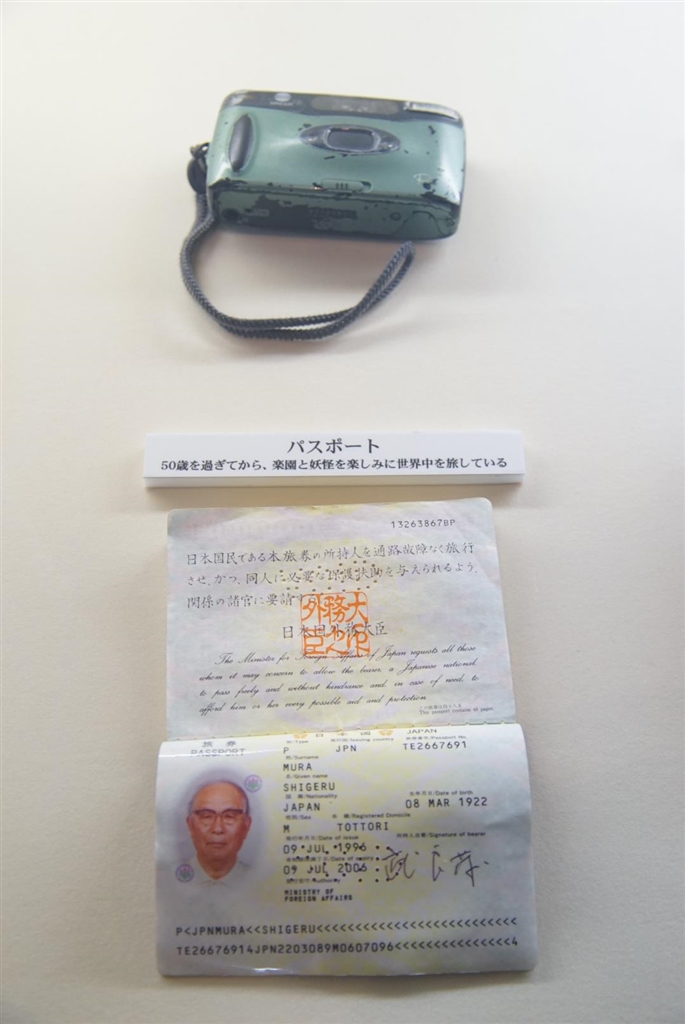 パスポート
50歳を過ぎてから、楽園と妖怪を楽しみに世界中を旅している
13263867BP
日本国民である本旅券の所持人を通路故障なく旅行
させ、かつ、同人に必要な保護扶助を与えられるよう、
関係の諸官に要請する。
日本国外務大臣
The Minister for Foreign Affairs of Japan requests all those
whom it may concern to allow the bearer, a Japanese national,
to pass freely and without hindrance and, in case of need, to
afford him or her every possible aid and protection.
旅券 日本国 JAPAN
PASSPORT P JPN TE2667691
MURA
SHIGERU
JAPAN 08 MAR 1922
M TOTTORI
09 JUL 1996
09 JUL 2006
MINISTRY OF
FOREIGN AFFAIRS
P<JPNMURA<<SHIGERU<<<<<<<<<<<<<<<<<<<<<<<<<<
TE26676914JPN2203089M0607096<<<<<<<<<<<<<<<4